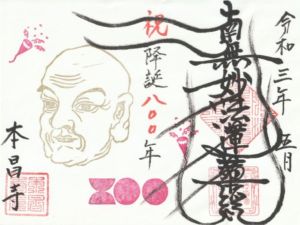 令和三年五月
南無妙法蓮華経
祝降誕八〇〇年
本昌寺